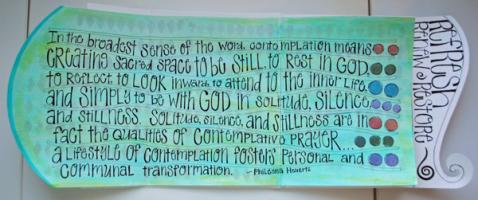 In the broadest sense of the word, contemplation means
creating sacred space to be still to rest in God,
to reflect to look inward, to attend to the inner life,
and simply to be with God in solitude, silence,
and stillness. Solitude, silence, and stillness are in
fact the qualities of contemplative prayer...
a lifestyle of contemplation fosters personal and
communal transformation. -Phileena Heuertz
Refresh
Renew Restore